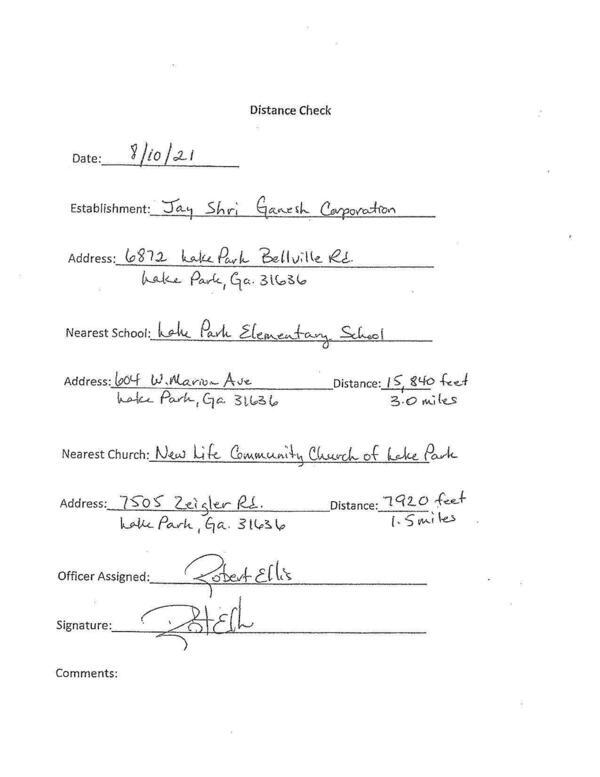 Distance Check
Date: 8/10/21
Establishment: Jay Shri Ganesh Corporation
Address: 6872 Lake Park Bellville Rd.
Lake Park, Ga. 31636
Nearest School: Lake Park Elementary School
Address: 604 W. Marion Ave Distance: 15,840 feet
Lake Park, Ga 31636 3.0 miles
Nearest Church: New Life Community Church of Lake Park
Address: 7505 Zeigler Rd. Distance: 7920 feet
Lake Park, Ga. 31636 1.5 miles
Officer Assigned: Robert Ellis
Signature:
Comments: